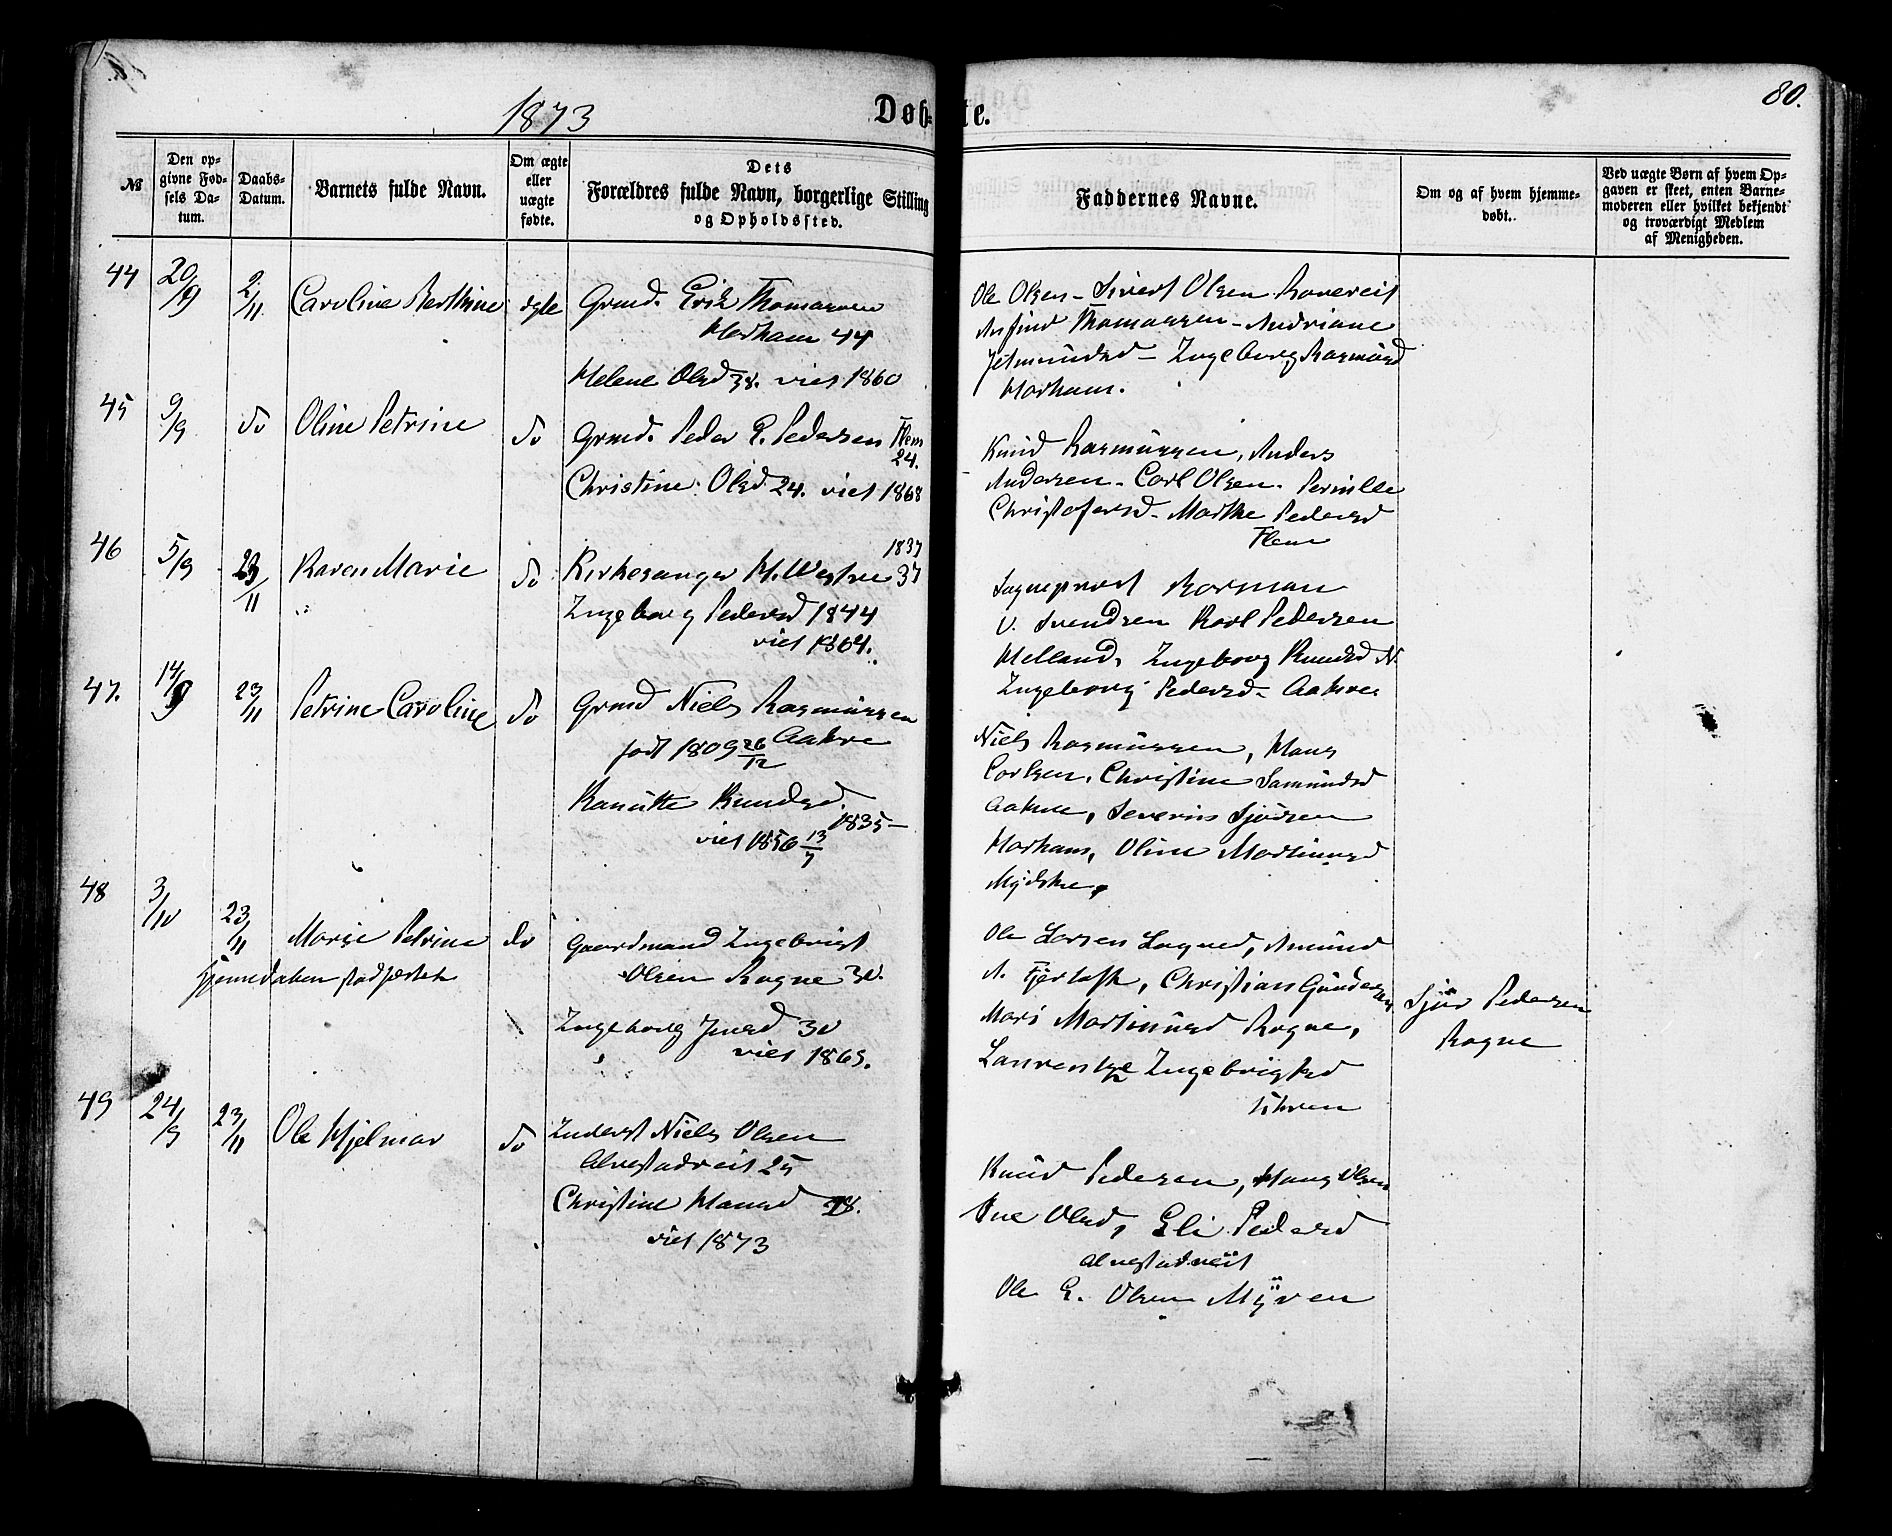 1873
Døb-
te.
80.
№
Den opgivne Fødsels Datum.
Daabs-Datum.
Barnets fulde Navn.
Om ægte eller uægte fødte.
Dets
Forældres fulde Navn, borgerlige Stilling
og Opholdssted.
Faddernes Navne.
Om og af hvem hjemmedøbt.
Ved uægte Børn af hvem Opgaven er skeet, enten Barnemoderen eller hvilket bekjendt og troværdigt Medlem af Menigheden.
44 20/9 2/11 Caroline Berthine ægte Grmd. Erik Thomassen
Harham 44
Helene Olsd 38. viet 1860
Ole Olsen - Sivert Olsen Rovereit
Anfind Thomassen - Andriane
Jetmundsd - Ingeborg Rasmusd
Harham.
45 9/9 do Oline Petrine do Grmd. Peder P. Pedersen Flem
24.
Christine Olsd 24. viet 1868
Knud Rasmussen, Anders
Andersen - Carl Olsen - Pernille
Christofersd - Marthe Pedersd
Flem
46 5/9 23/11 Karen Marie do Kirkesanger H. Westre 37
1837
Ingeborg Pedersd 1844
viet 1864.
Sogneprest Borman
V. Svendsen Karl Pedersen
Helland, Ingeborg Knudsd N.
Ingeborg Pedersd - Aakre
47. 14/9 23/11 Petrine Caroline do Grmd Niels Rasmussen
født 1809 26/12 Aakre
Kanutte Knudsd.
1835 -
viet 1856 13/7
Niels Rasmussen, Hans
Carlsen, Christine Samundsd
Aakre, Severin Sjursen
Harham, Oline Martinusd
Mydske,
48 3/10 23/11 Marie Petrine do Gaardmand Ingebrigt
Hjemmedaaben stadfæstet
Olsen Rogne 30.
Ingeborg Jensd 30
viet 1865.
Ole Larsen Logned, Amund
A. Fjertoft, Christian Gundersen
Mari Martinusd Rogne,
Laurentze Ingebrigtsd
Uhren
Sjur Pedersen
Rogne
49 24/9 23/11 Ole Hjelmar do Inderst Niels Olsen
Alvestadreit 25
Christine Hansd 28.
viet 1873
Knud Pedersen, Hans Olsen
Ane Olsd, Eli Pedersd
Alvestadreit
Ole E. Olsen Myren